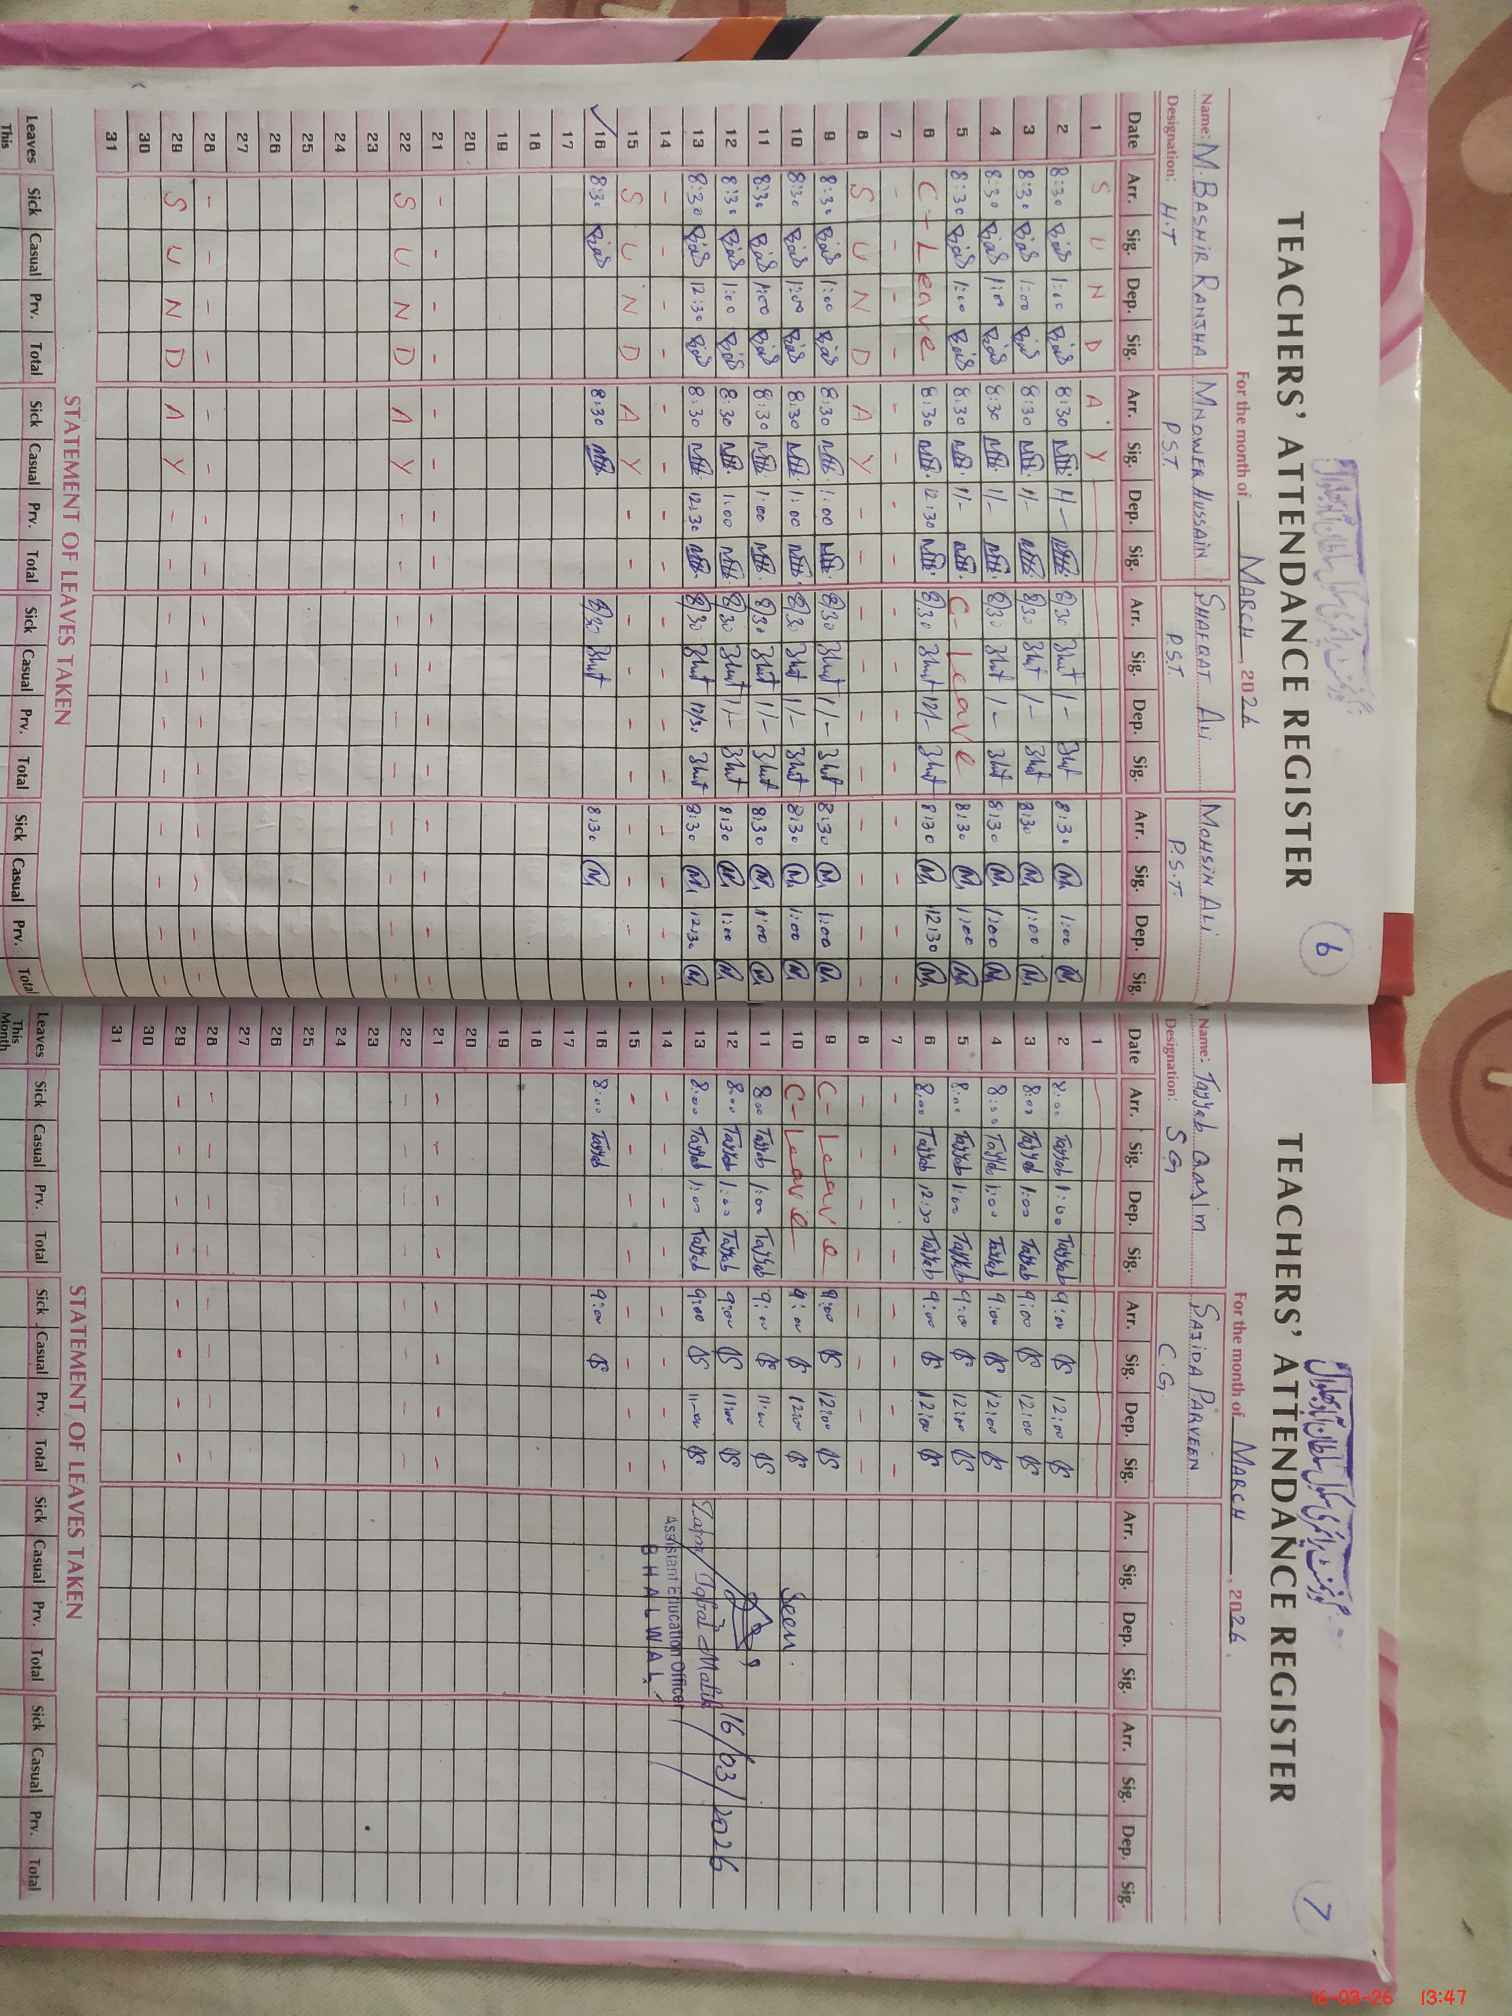 TEACHERS' ATTENDANCE REGISTER
6
For the month of MARCH, 2026
Name: M. BASHIR RANJHA MNOWER HUSSAIN SHAFQAT ALI MOHSIN ALI
Designation: H.T P.S.T. P.S.T. P.S.T.
Date Arr. Sig. Dep. Sig. Arr. Sig. Dep. Sig. Arr. Sig. Dep. Sig. Arr. Sig. Dep. Sig.
1 S U N D A Y
2 8:30 1:00 8:30 1/- 8/30 1/- 8:30 1:00
3 8:30 1:00 8:30 1/- 8/30 1/- 8:30 1:00
4 8:30 1:00 8:30 1/- 8/30 1/- 8:30 1:00
5 8:30 1:00 8:30 1/- C-Leave 8:30 1:00
6 C-Leave 8:30 12:30 8/30 12/- 8:30 12:30
7 - - - - - - - - - - - - - - - -
8 S U N D A Y - - - - - - - - - -
9 8:30 1:00 8:30 1:00 8/30 1/- 8:30 1:00
10 8:30 1:00 8:30 1:00 8/30 1/- 8:30 1:00
11 8:30 1:00 8:30 1:00 8/30 1/- 8:30 1:00
12 8:30 1:00 8:30 1:00 8/30 1/- 8:30 1:00
13 8:30 12:30 8:30 12:30 8/30 12/30 8:30 12:30
14 - - - - - - - - - - - - - - - -
15 S U N D A Y - - - - - - - - - -
16 8:30 8:30 8/30 8:30
17
18
19
20
21 - - - - - - - - - - - - - - - -
22 S U N D A Y - - - - - - - - - -
23
24
25
26
27
28 - - - - - - - - - - - - - - - -
29 S U N D A Y - - - - - - - - - -
30
31
STATEMENT OF LEAVES TAKEN
Leaves Sick Casual Prv. Total Sick Casual Prv. Total Sick Casual Prv. Total Sick Casual Prv. Total
This
TEACHERS' ATTENDANCE REGISTER
7
For the month of MARCH, 2026
Name: Tayyab Qasim SAJIDA PARVEEN
Designation: S.G C.G
Date Arr. Sig. Dep. Sig. Arr. Sig. Dep. Sig. Arr. Sig. Dep. Sig. Arr. Sig. Dep. Sig.
1
2 8:00 Tayyab 1:00 Tayyab 9:00 12:00
3 8:00 Tayyab 1:00 Tayyab 9:00 12:00
4 8:00 Tayyab 1:00 Tayyab 9:00 12:00
5 8:00 Tayyab 1:00 Tayyab 9:00 12:00
6 8:00 Tayyab 12:30 Tayyab 9:00 12:00
7 - - - - - - - -
8 - - - - - - - -
9 C-Leave 9:00 12:00
10 C-Leave 9:00 12:00 Seen.
11 8:00 Tayyab 1:00 Tayyab 9:00 11:00
12 8:00 Tayyab 1:00 Tayyab 9:00 11:00 16/03/2026
13 8:00 Tayyab 1:00 Tayyab 9:00 11:00 Iqbal Malik
14 - - - - - - - - Assistant Education Officer
15 - - - - - - - - BHALWAL
16 8:00 Tayyab 9:00
17
18
19
20
21 - - - - - - - -
22 - - - - - - - -
23
24
25
26
27
28 - - - - - - - -
29 - - - - - - - -
30
31
STATEMENT OF LEAVES TAKEN
Leaves Sick Casual Prv. Total Sick Casual Prv. Total Sick Casual Prv. Total Sick Casual Prv. Total
This
Month
16-03-26 13:47